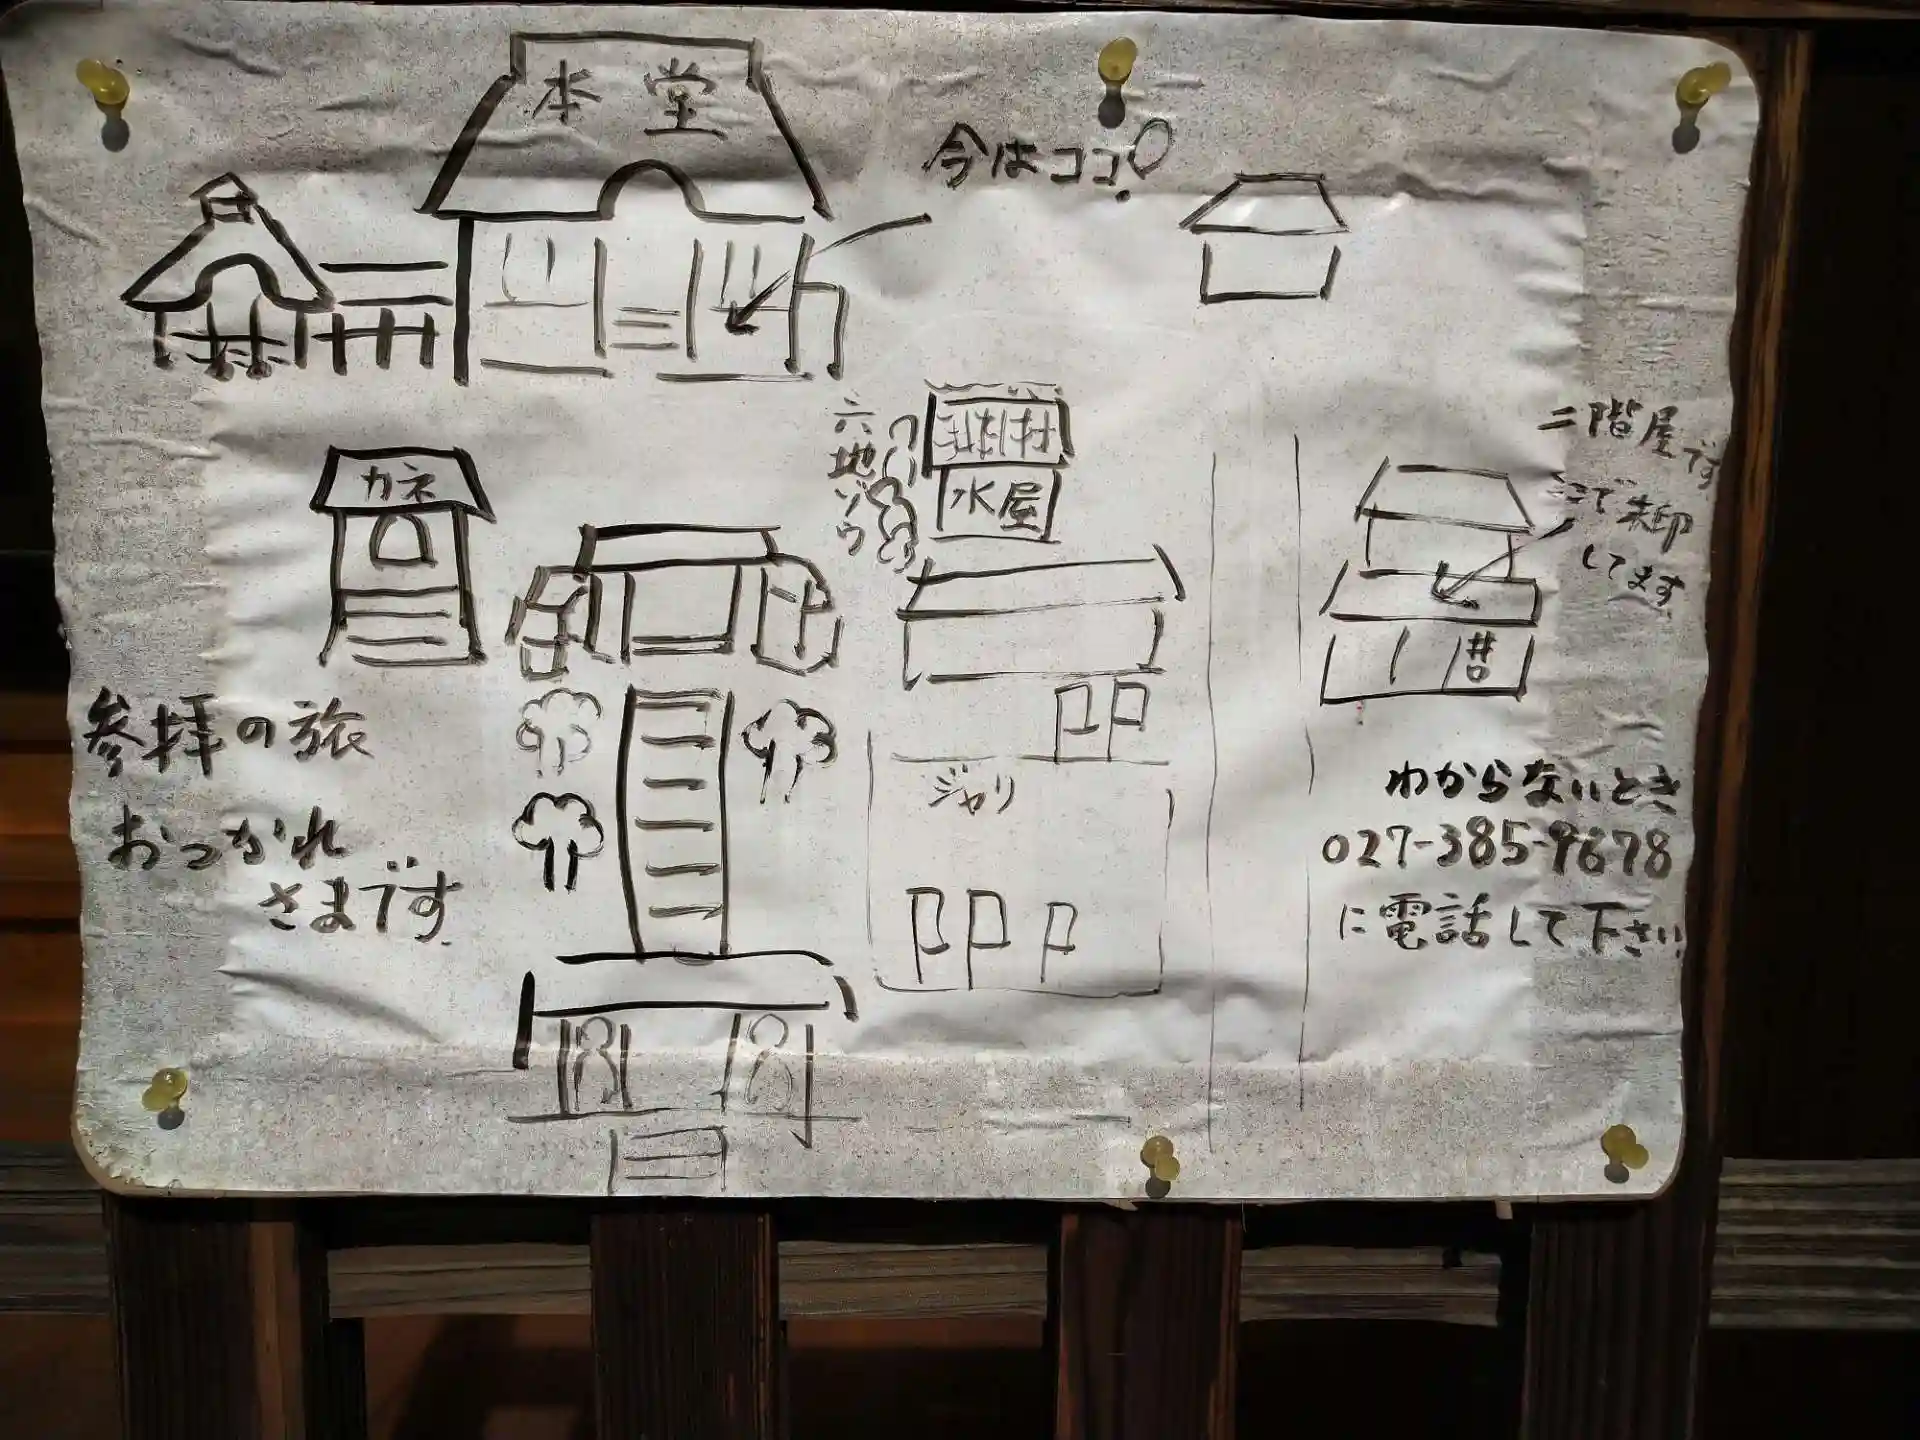 本堂
今はココ!
二階屋です
ここで朱印
してます
六地ゾウ
カネ
水屋
参拝の旅
おつかれ
さまです
ジャリ
わからないとき
027-385-9678
に電話して下さい